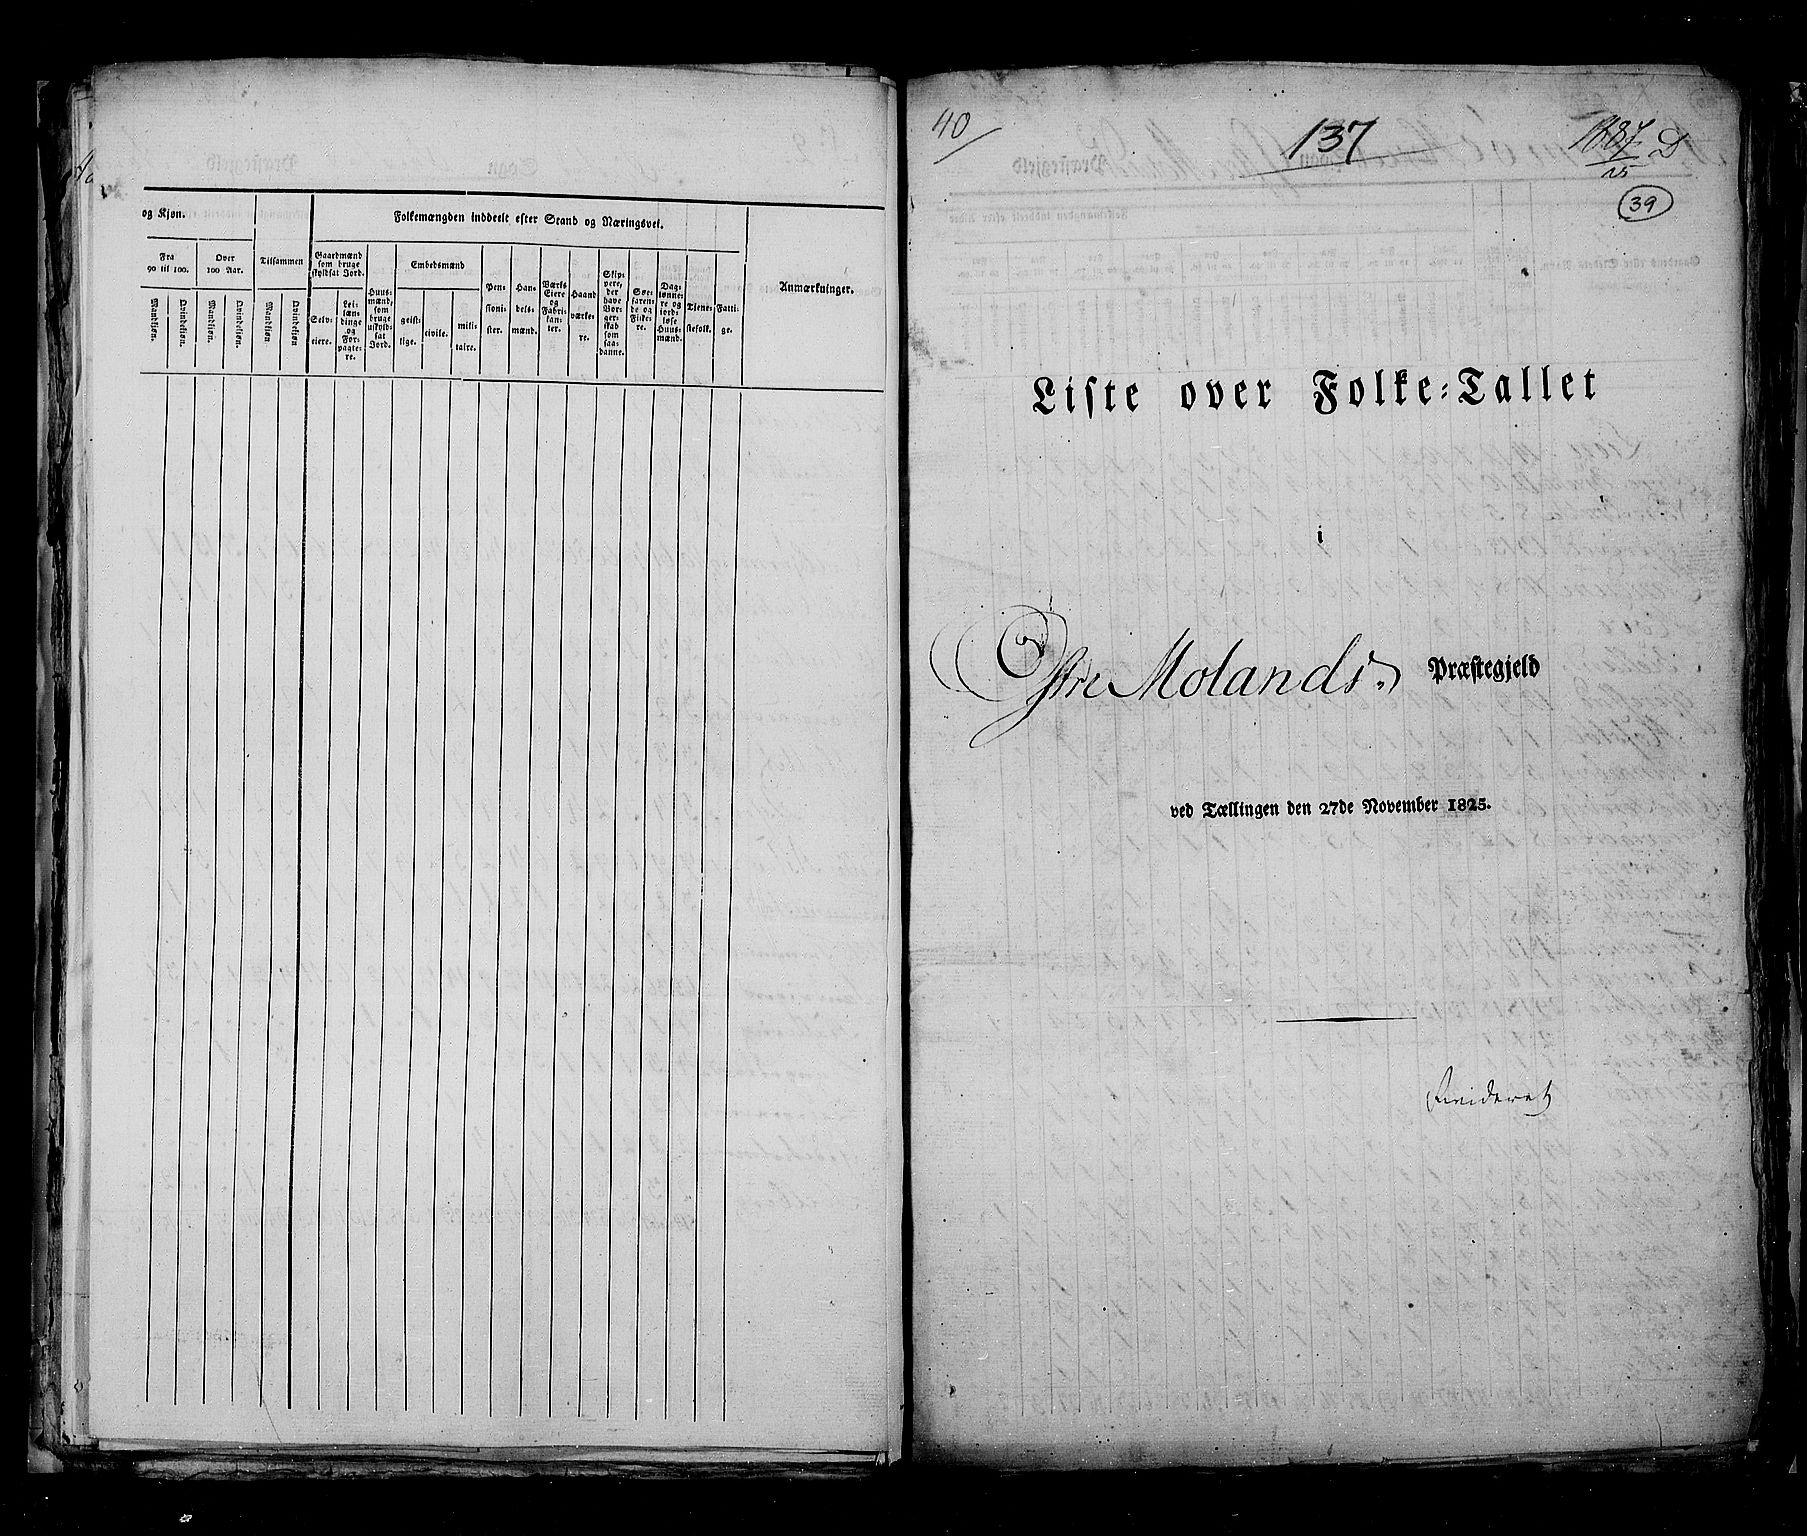 og Kjøn.
Folkemængden inddeelt efter Stand og Næringsvei.
Anmærkninger.
Fra 90 til 100.
Over 100 Aar.
Tilsammen
Gaardmænd som bruge skyldsat Jord.
Huusmænd, som bruge uskyldsat Jord.
Embedsmænd
Pensionister.
Handelsmænd.
Værks Eiere og Fabrikanter.
Haandværkere.
Skippere, der have Borgerskab som saadanne.
Søefarende og Fiskere.
Dagлønnere og jordløse Huusmænd.
Tjenestefolk.
Fattige.
Mandkjøn.
Qvindekjøn.
Mandkjøn.
Qvindekjøn.
Mandkjøn
Qvindekjøn
Selveiere.
Leilændinge og Forpagtere.
geistlige.
civile.
militaire.
40
137
D
39
Liste over Folke-Tallet
i
Østre Molands Præstegjeld
ved Tællingen den 27de November 1825.
Revideret